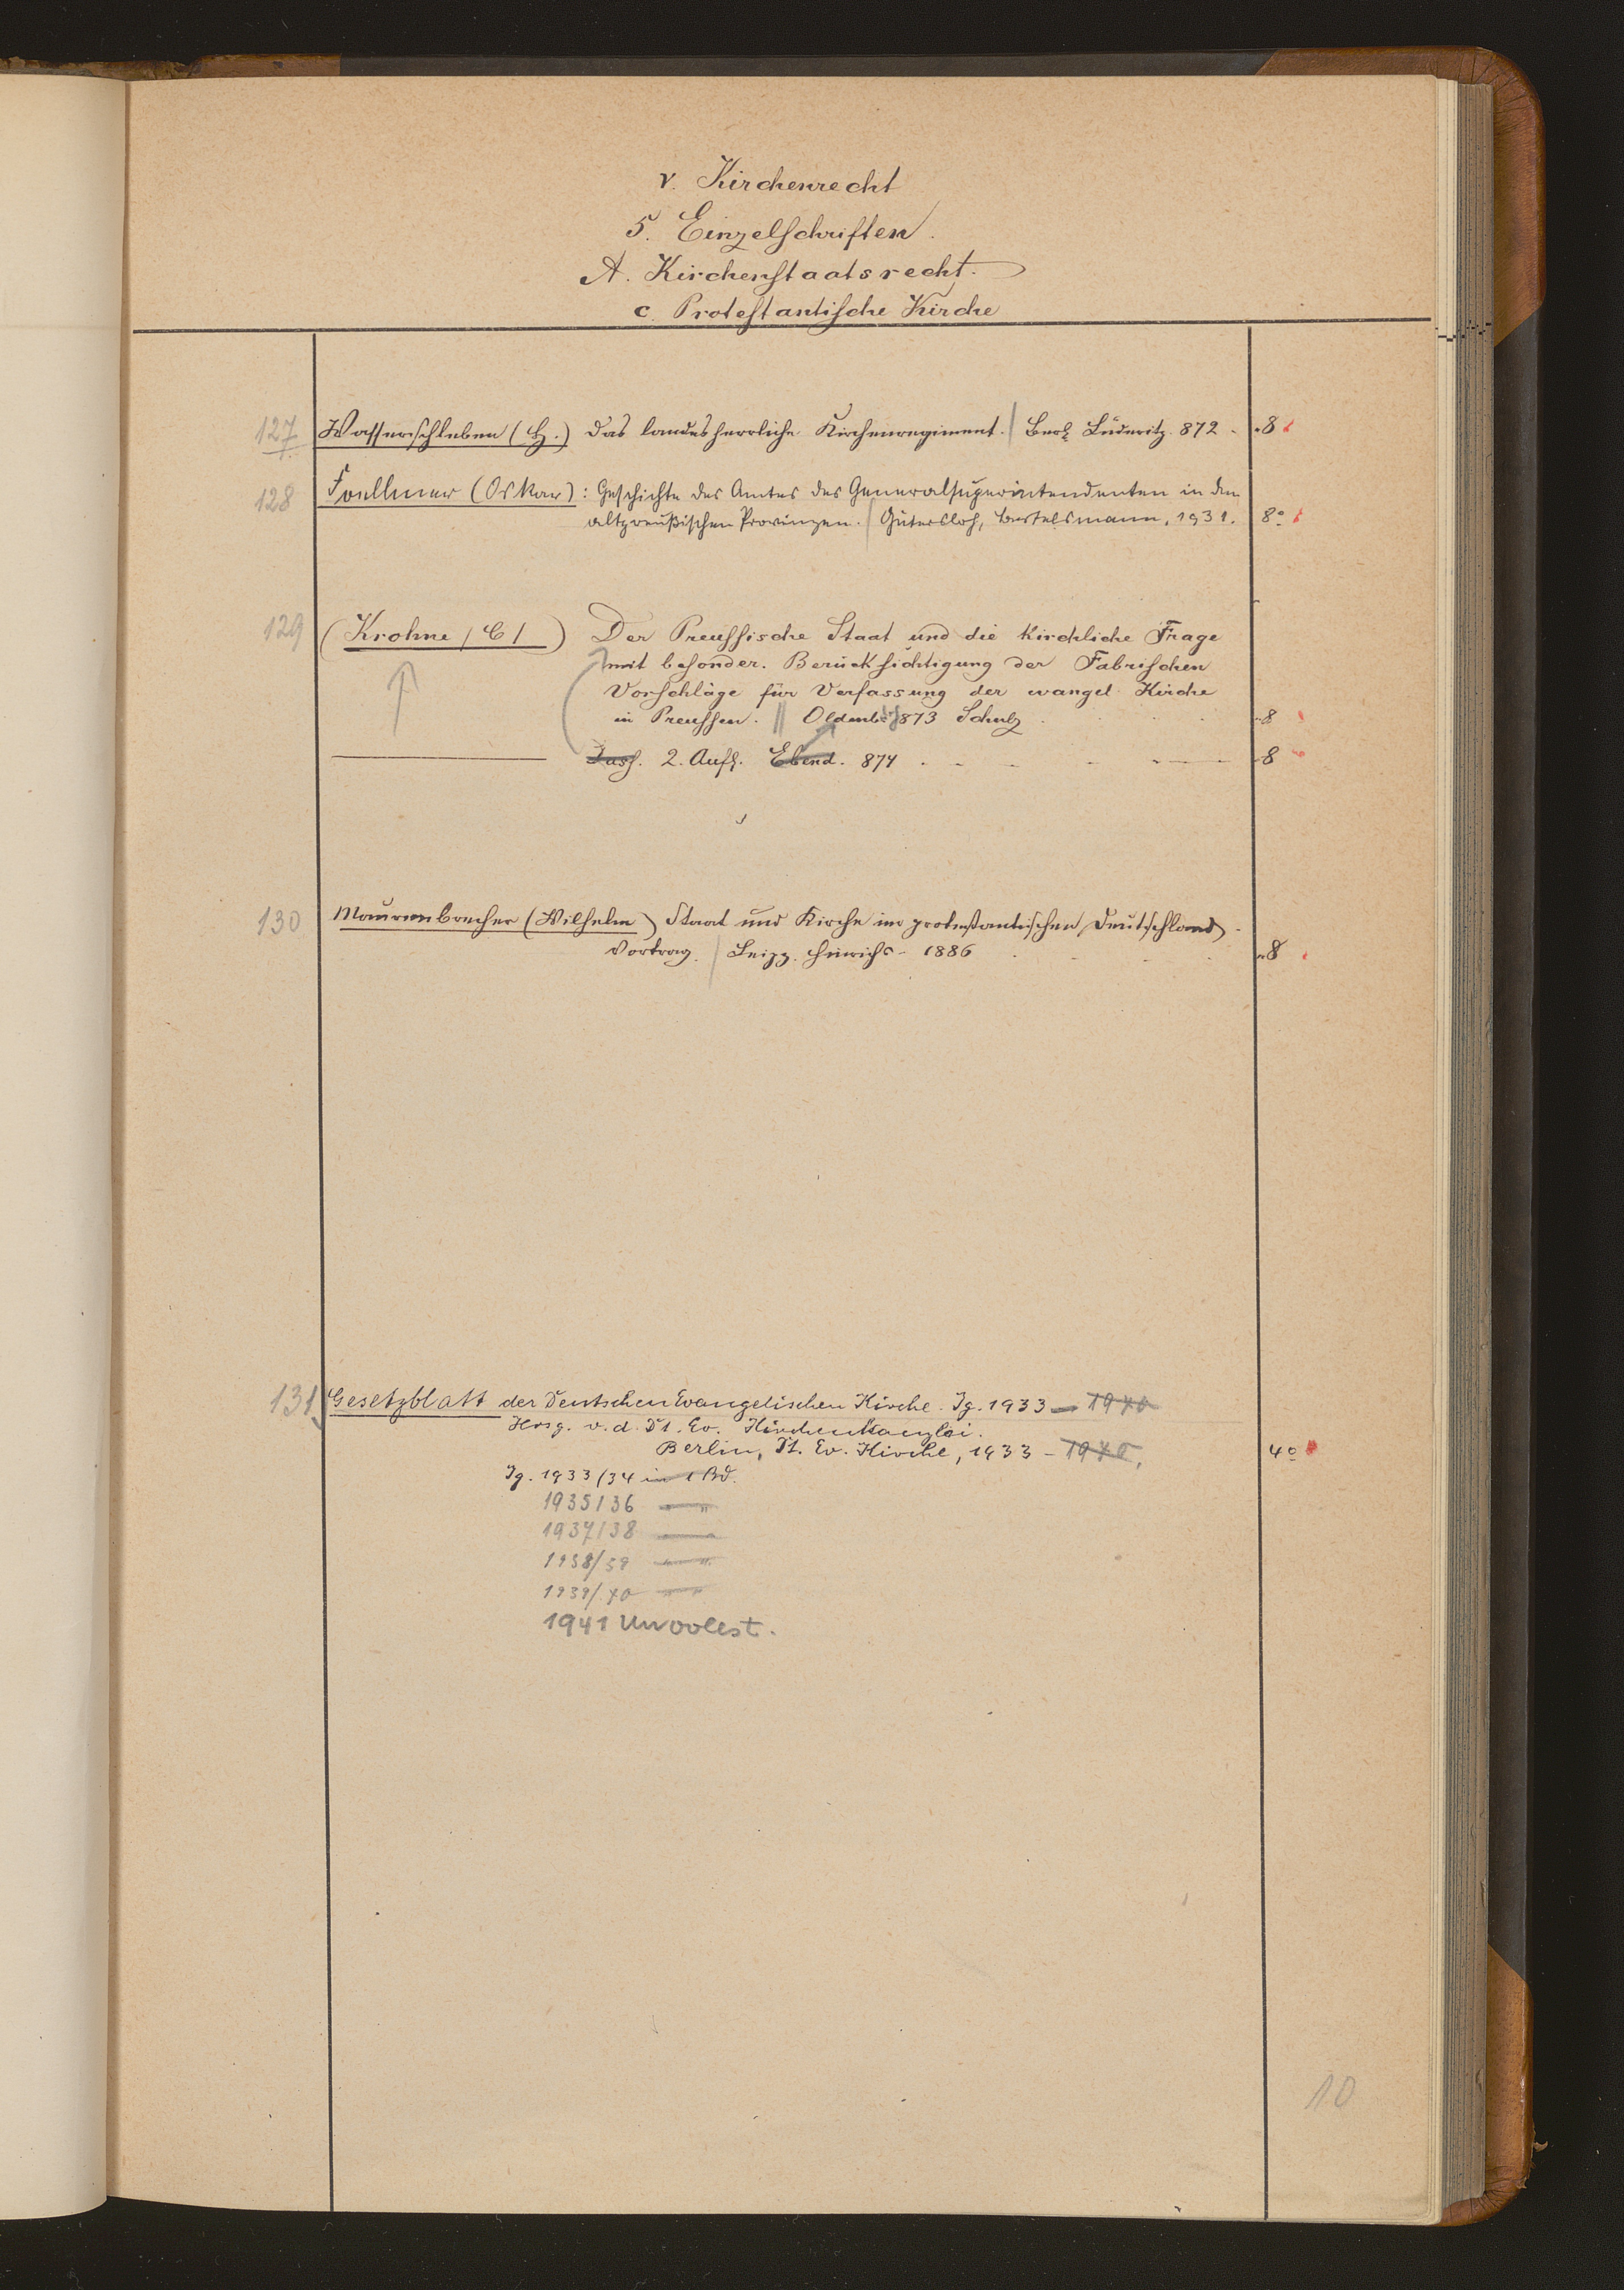 V. Kirchenrecht
5. Einzelschriften.
A. Kirchenstaatsrecht.
c. Protestantische Kirche
127 Wasserschleben (H.) Das landesherrliche Kirchenregiment. / Berl. Lüderitz. 872 - 8
128 Foellmer (Oskar): Geschichte des Amtes des Generalsuperintendenten in den
altpreußischen Provinzen. / Gütersloh, Bertelsmann, 1931. 8°
129 (Krohne / C /) Der Preussische Staat und die kirchliche Frage
mit besonder. Berücksichtigung der Fabrischen
Vorschläge für Verfassung der evangel. Kirche
in Preussen. // Oldenb. 873 Schulz 8
Dass. 2. Aufl. Ebend. 874 . - - - - 8
130 Maurenbrecher (Wilhelm) Staat und Kirche im protestantischen Deutschland.
Vortrag. / Leipz. Hinrichs - 1886 8
131 Gesetzblatt der Deutschen Evangelischen Kirche. Jg. 1933 - 1940
Hrsg. v. d. Dt. Ev. Kirchenkanzlei.
Berlin, Dt. Ev. Kirche, 1933 - 1940. 4°
Jg. 1933/34 in 1 Bd.
1935/36 — " —
1937/38 — " —
1938/39 — " —
1939/40 — " —
1941 unvollst.
10